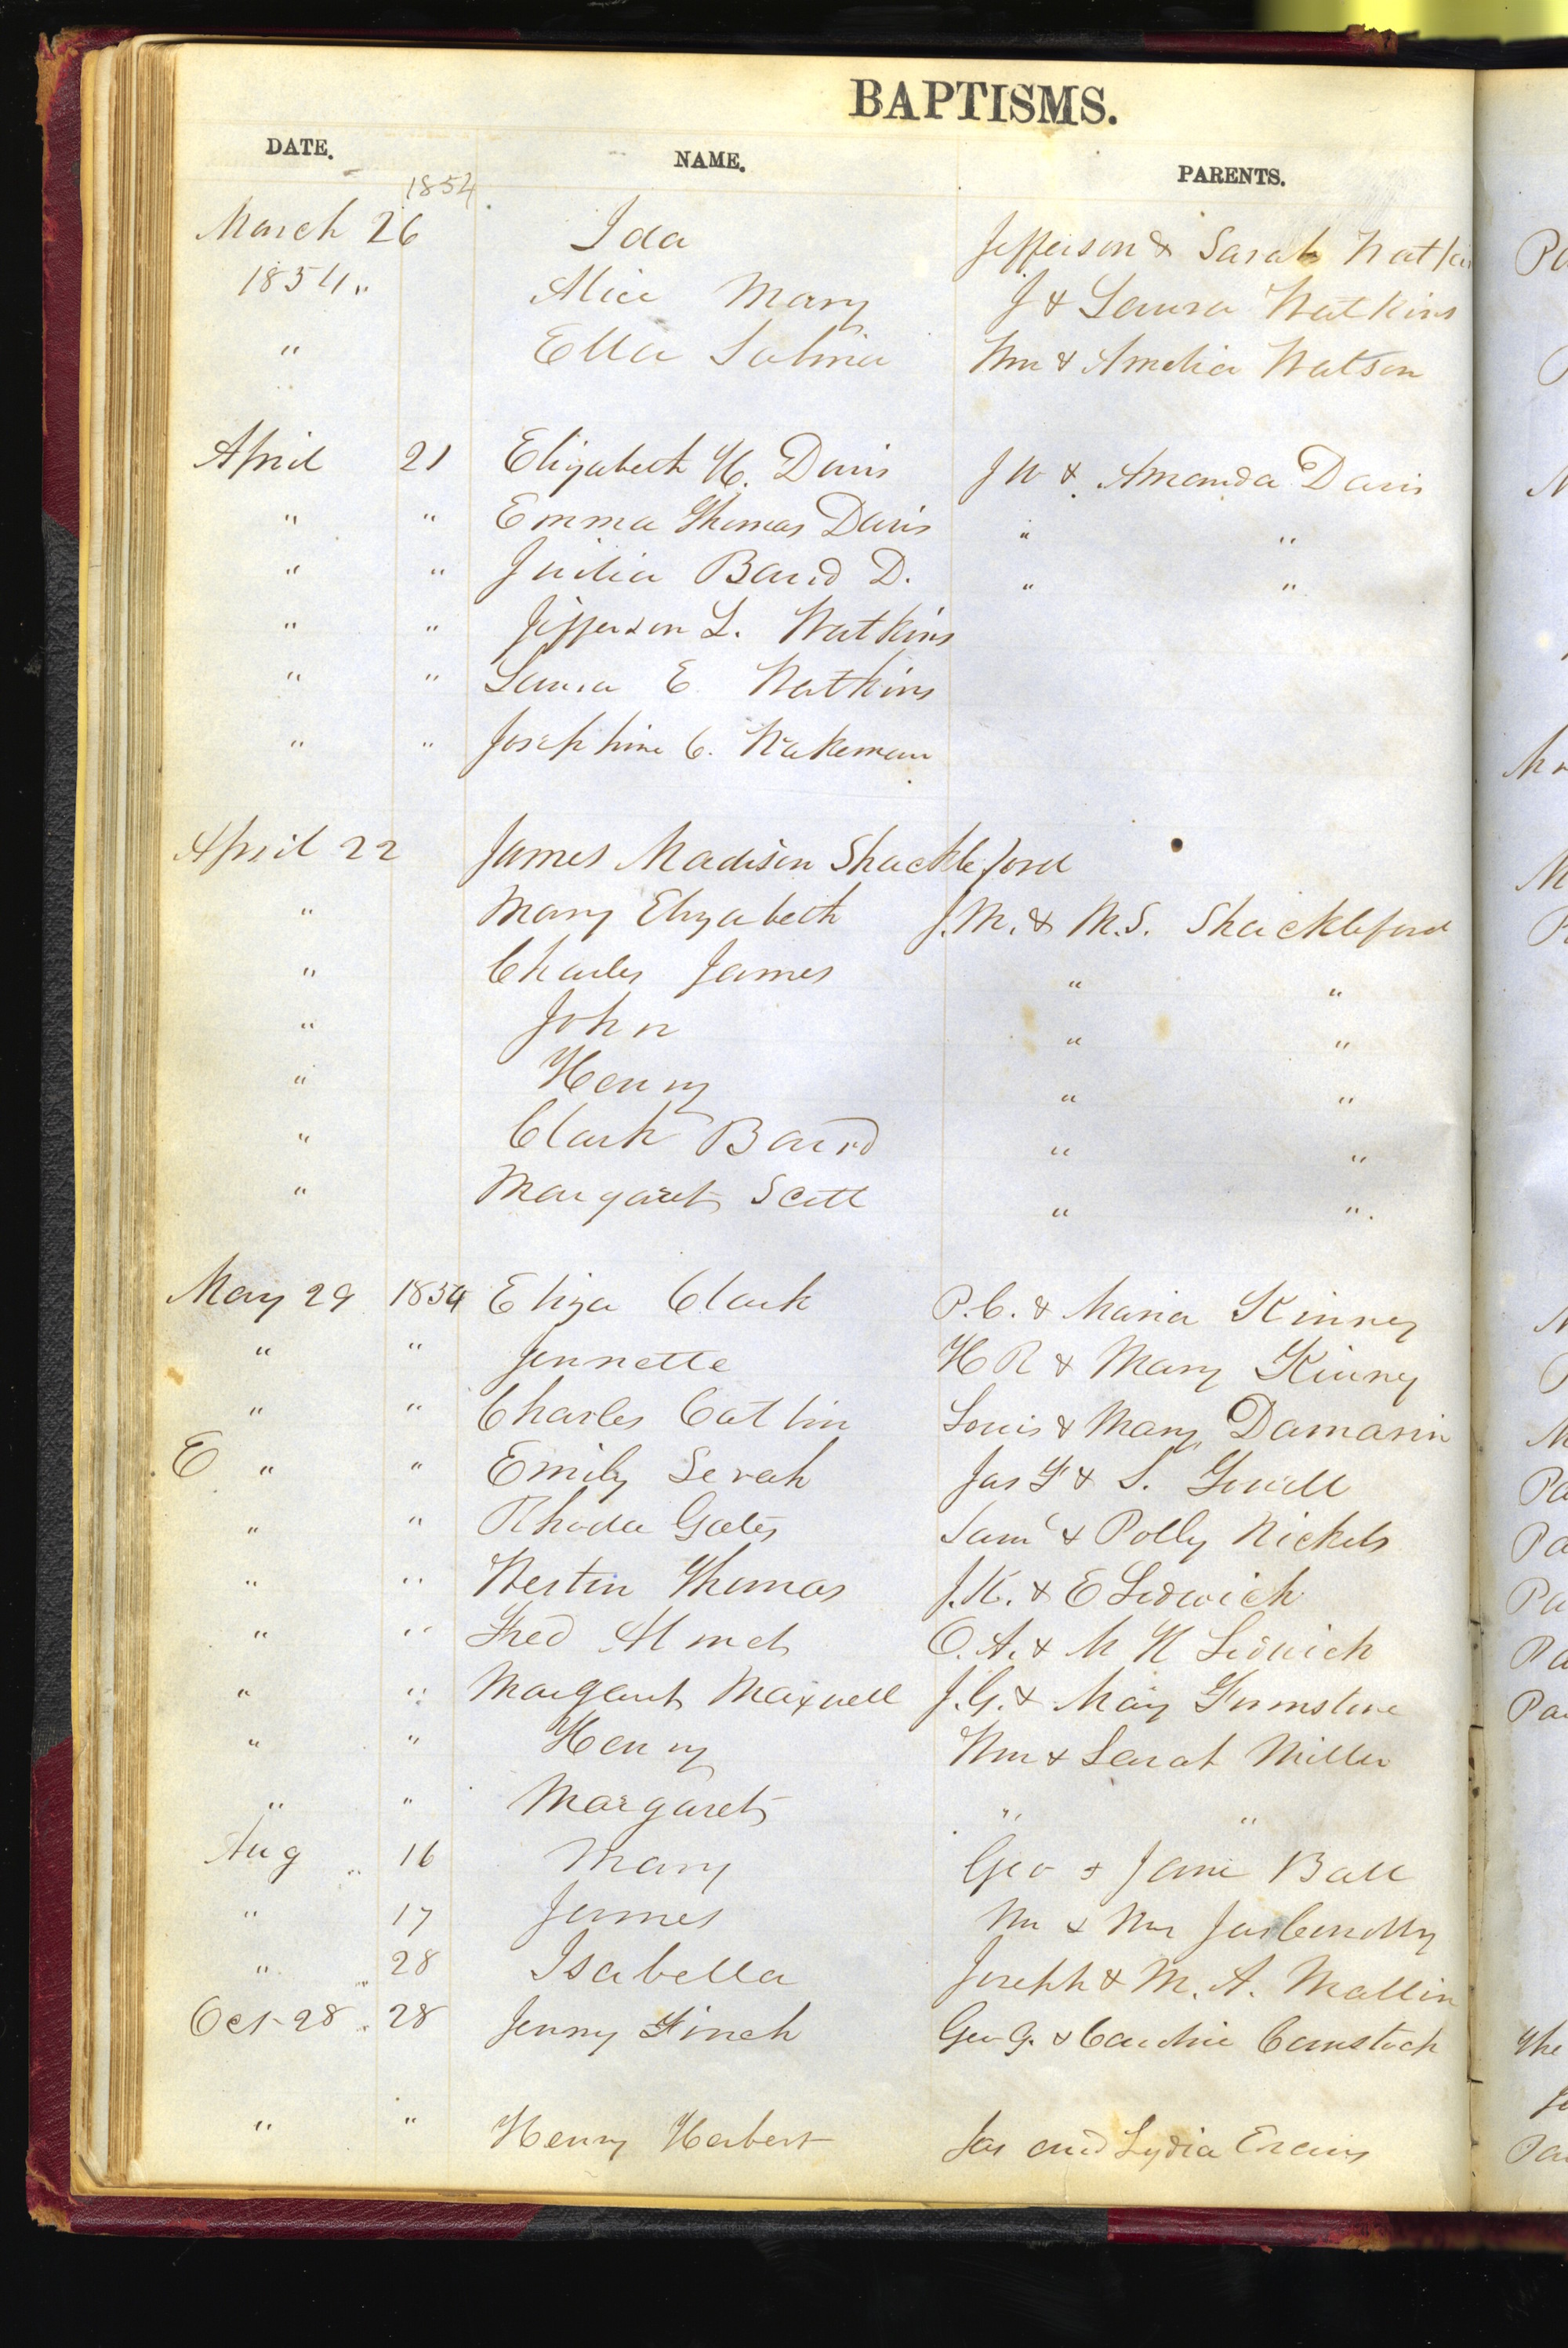 BAPTISMS.
DATE. NAME. PARENTS.
1854
March 26 Ida Jefferson & Sarah Watkins
1854 " Alice Mary J & Laura Watkins
" Ella Salina Wm & Amelia Watson
April 21 Elizabeth H. Davis J W & Amanda Davis
" " Emma Thomas Davis " "
" " Julia Baird D. " "
" " Jefferson L. Watkins
" " Laura E Watkins
" " Josephine C. Wakeman
April 22 James Madison Shackleford
" Mary Elizabeth J. M. & M. S. Shackleford
" Charles James " "
" John " "
" Henry " "
" Clark Baird " "
" Margaret Scott " ".
May 29 1854 Eliza Clark P. C. & Maria Kinney
" " Jennette H R & Mary Kinney
" " Charles Catlin Louis & Mary Damarin
E " " Emily Serah Jas F & S. Towell
" " Rhoda Gates Saml & Polly Nickels
" " Westin Thomas J. K. & E Ledwich
" " Fred O. A. & M Ledwich
" " Margaret Maxwell J. G. & Mary Firmstone
" " Henry Wm & Sarah Miller
" " Margaret " "
Aug " 16 Mary Geo & Jane Ball
" 17 James Mr & Mrs Jas Conolly
" " 28 Isabella Joseph & M. A. Mallin
Oct 28 " 28 Jenny Finch Geo G. & Comstock
" " Henry Herbert Jas and Lydia Evans